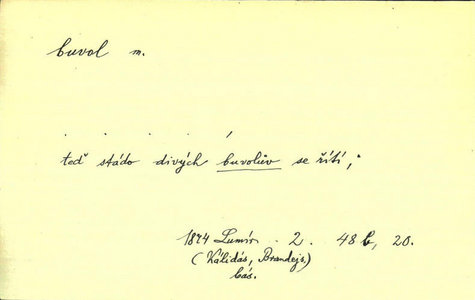 buvol m.
. . . . /
teď stádo divých buvolův se řítí,
1874 Lumír. 2. 48 b, 20.
(Kálidás, Brandejs.)
bás.